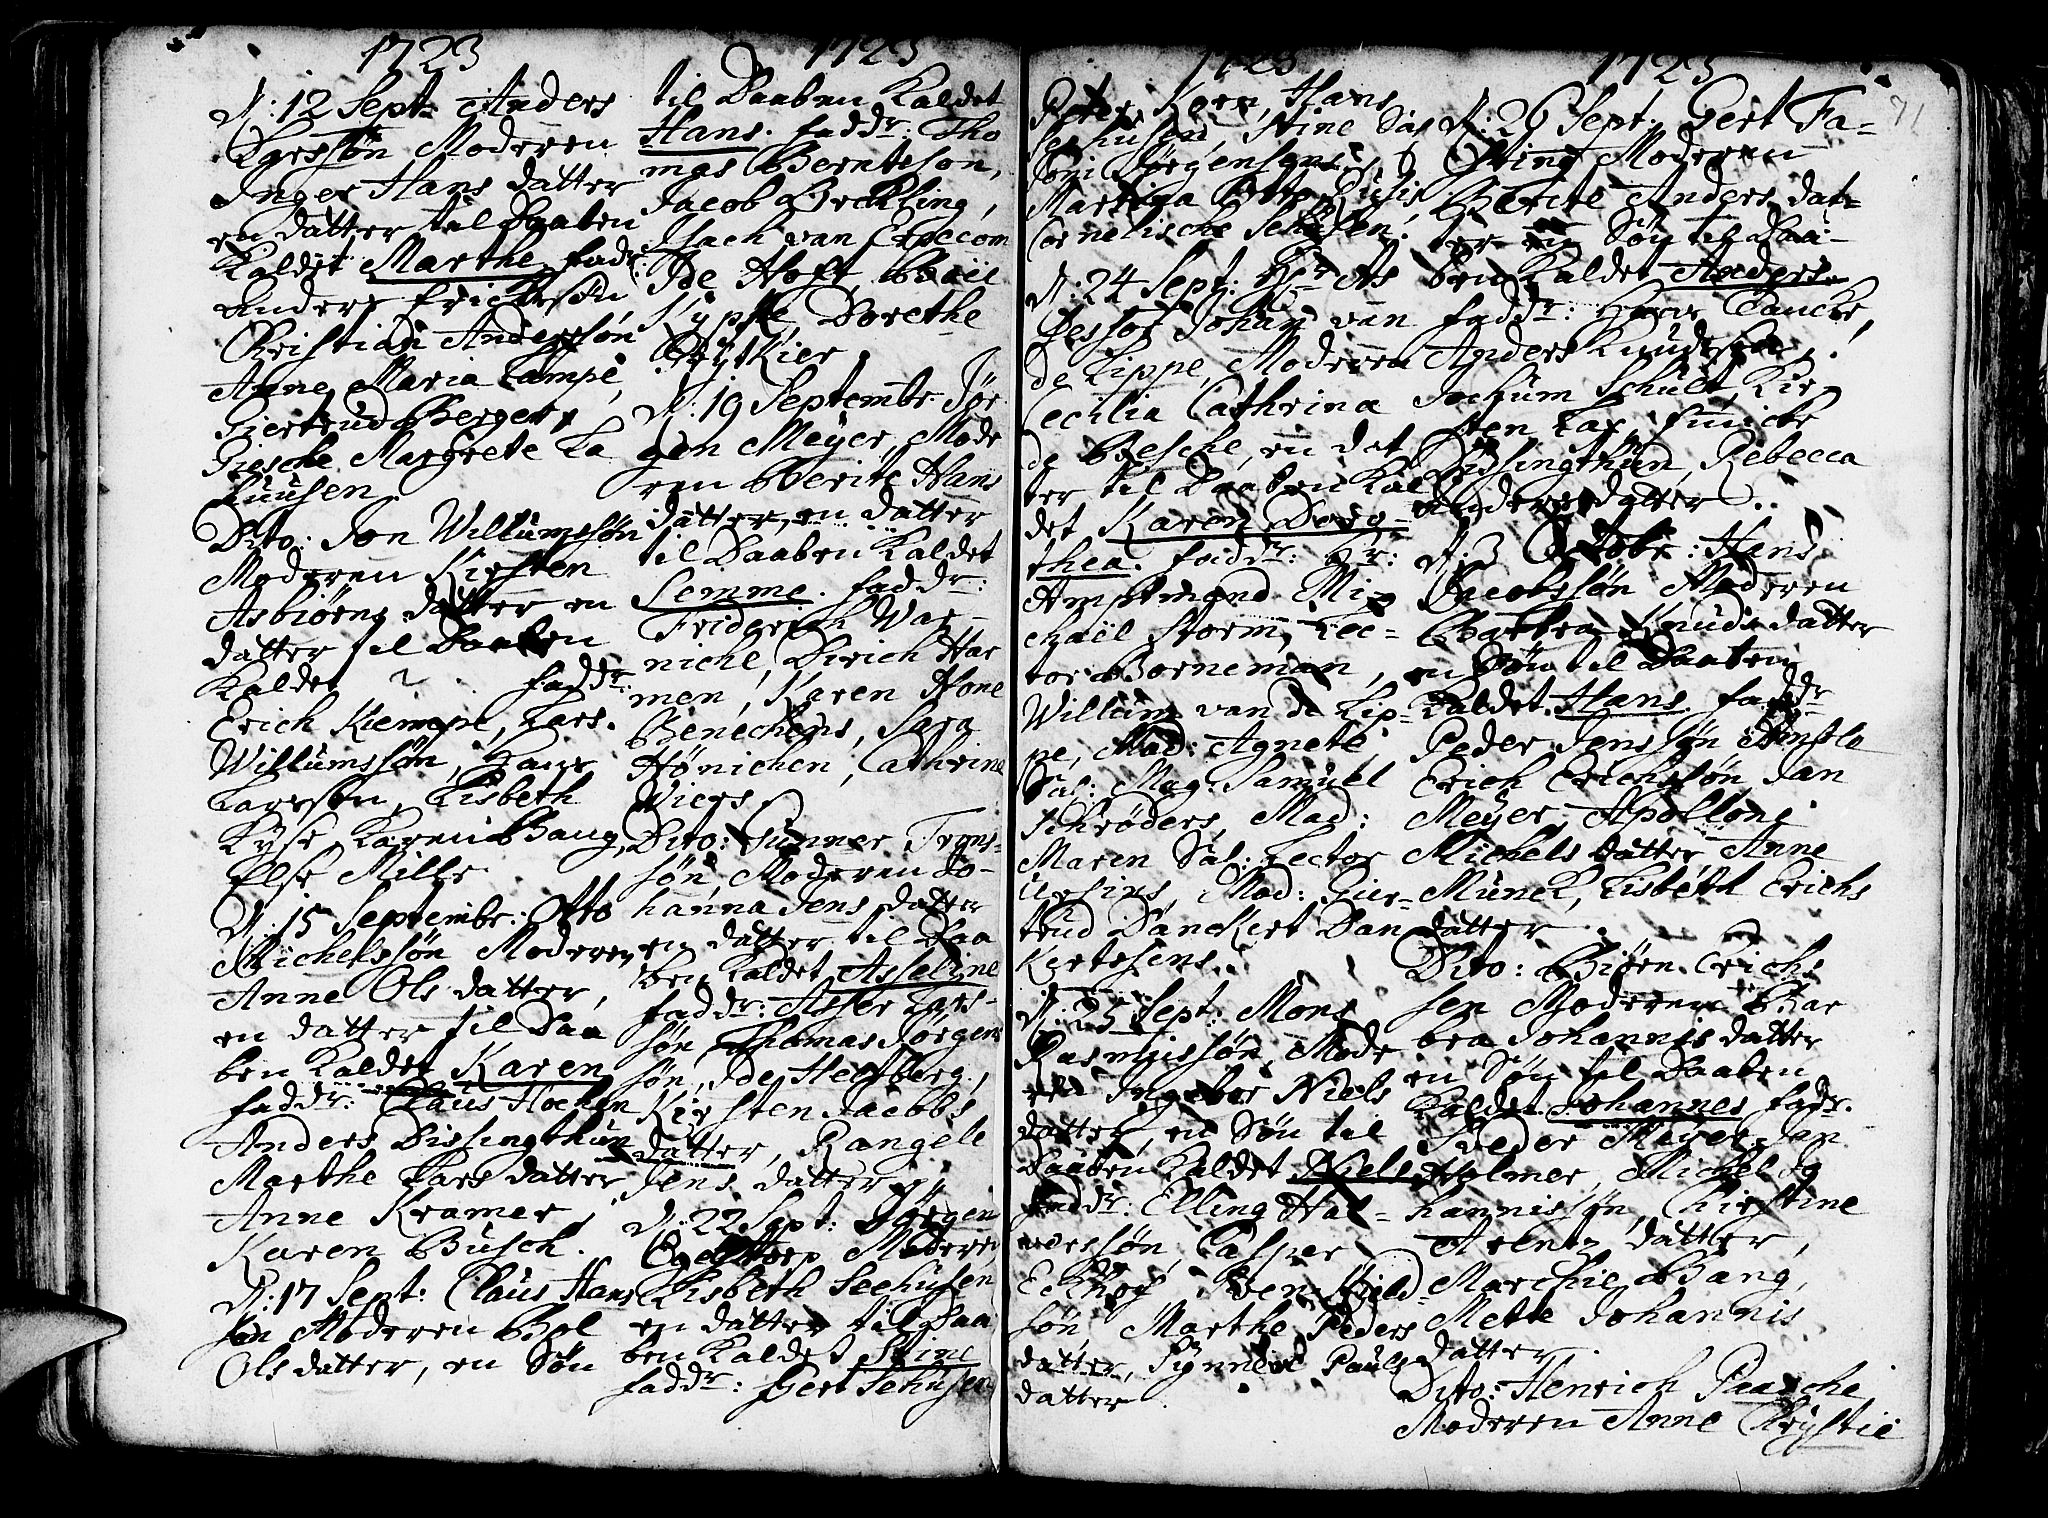 1723
D: 12 Sept: Anders
Larssøn Moderen
Inger Hans datter
en datter til Daaben
kaldet Marthe, fadr:
Anders Erichssøn
Christian Anderssøn
Anne Maria Lampe,
Giertrud Berger,
Giesche Margrete La
huusen
Dito: Jon Willumssøn
Moderen Kirsten
Asbiørns datter en
datter til Daaben
kaldet ? . faddr:
Erich Kiempe, Lars
Willumssøn, Hans
Larssen, Lisbeth
Kyse, Karen Baug,
Else Mille
D: 15 Septembr: Otto
Michelssøn Moderen
Anne Ols datter,
en datter til Daa
ben kaldet Karen
faddr: Claus
Anders Dissingthun
Marthe Lars datter
Anne Kramer,
Karen Busch.
D: 17 Sept: Claus Hans
søn Moderen Bol
Ols datter, en Søn
1723
til Daaben kaldet
Hans. faddr: Tho
mas Berntsson,
Jacob Breckling,
Isach van Erpecom
Ide Hoft,
Dorethe
.
D: 19 Septembr. Jør
gen Meyer, Mode
ren Berite Hans
datter, en datter
til Daaben kaldet
Lemme. faddr:
Friderich War-
niche, Dirich Har
men, Karen Hone
Benechens, Sara
Hønichen, Cathrine
Wiers.
Dito: Gunner Trons-
søn, Moderen Jo-
hanna Jens datter
en datter til Daa
ben kaldet Asseline
faddr: Asser Lars-
søn, Thomas Jørgens
søn, Ide Heltberg,
Kirsten Jacobs
datter, Rangele
Jens datter
D: 22 Sept: Jørgen
Egelstorp Moderen
Lisbeth Seehusen
en datter til Daa
ben kaldet Stine
faddr: Gert Sehusen
1723
Peter Korn, Hans
Seehusen, Stine
Jørgensens,
Martha
Cornelische
D: 24 Sept: Hr As
sessor Johan van
de Lippe, Moderen
Cecilia Cathrina
de Besche, en dat
ter til Daaben kal
det Karen Doro-
thea. faddr: Hr:
Amptmand Mi-
chaël Storm, Lec-
tor Borneman,
Willum van de Lip-
pe, Mad: Agnete
Sal: Mag. Samuel
Schrøders, Mad:
Maren Sal: Lector
Ursins, Mad: Gier-
trud Danckert Dan
Kertsens.
D: 25 Sept: Mons
Rasmussøn, Mode
ren Ingebor Niels
datter, en Søn til
Daaben kaldet Niels
faddr: Elling Hal-
vorssøn, Casper
Eckhof, Iven Kield-
søn, Marthe Peders
datter, Synneve Pauls
datter
1723
71
D: 26 Sept: Gert Fa-
sting Moderen
Berite Anders dat-
ter en Søn til Daa-
ben kaldet Anders.
faddr: Hans Cancke,
Anders Knudssøn
Jochum Schult, Kir
sten Lax, Sunicke
Dissingthun, Rebecca
Anders datter.
D: 3 Octobr: Hans
Jacobssøn Moderen
Barbra Knuds datter
en Søn til Daaben
kaldet Hans. faddr
Peder Jenssøn Amsle
Erich Erichssøn Jan
Meyer, Apolloni
Michels datter Anne
Munck, Lisbeth Erichs
datter
Dito: Biørn Erichs
sen Moderen Bar
bra Johannis datter
en Søn til Daaben
kaldet Johannes fadr.
Peder Meyer, Jan
Holmer, Michel Jo
hannissøn, Christine
Arentz datter,
Marchie Bang,
Mette Johannis
datter.
Dito: Henrich Paasche
Moderen Anne Chrystie